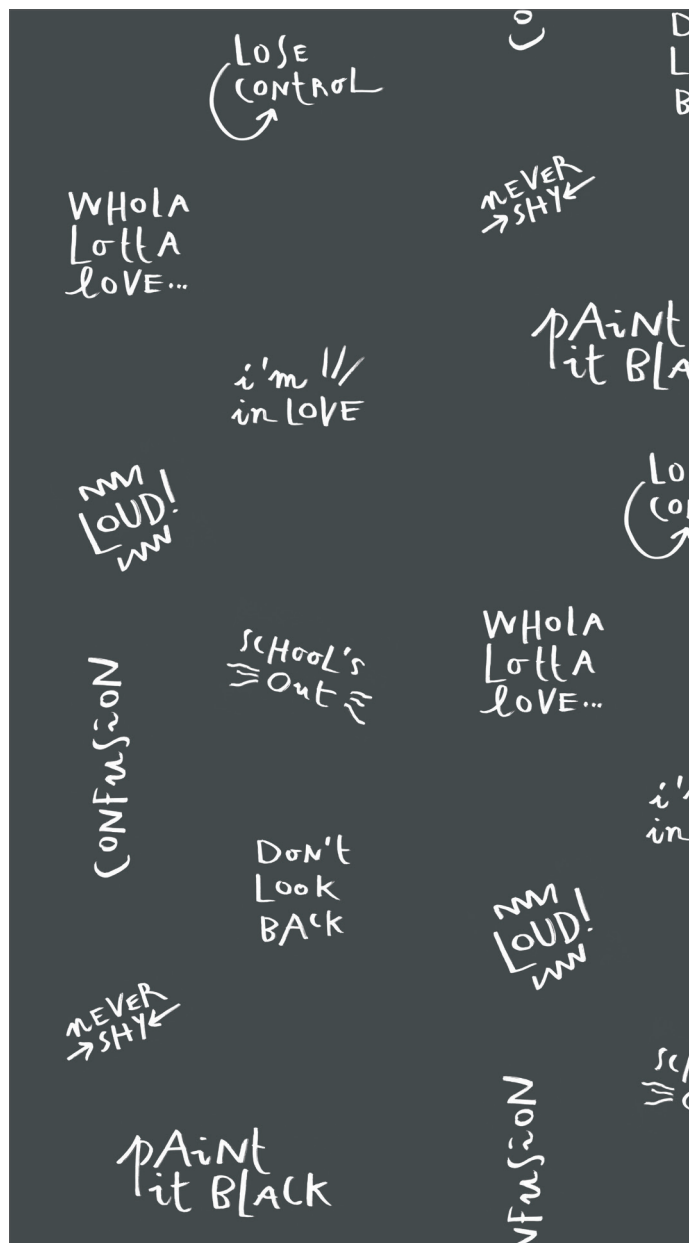 LOSE
CONTROL
CO
D
L
B
WHOLA
LOttA
LOVE...
NEVER
SHY
PAiNt
it BLA
i'm
in LOVE
LO
CO
LOUD!
SCHOOL'S
Out
WHOLA
LOttA
LOVE...
CONFUSiON
i'
in
DON'T
LOOk
BACk
LOUD!
NEVER
SHY
SC
NFUSiON
PAiNt
it BLACK